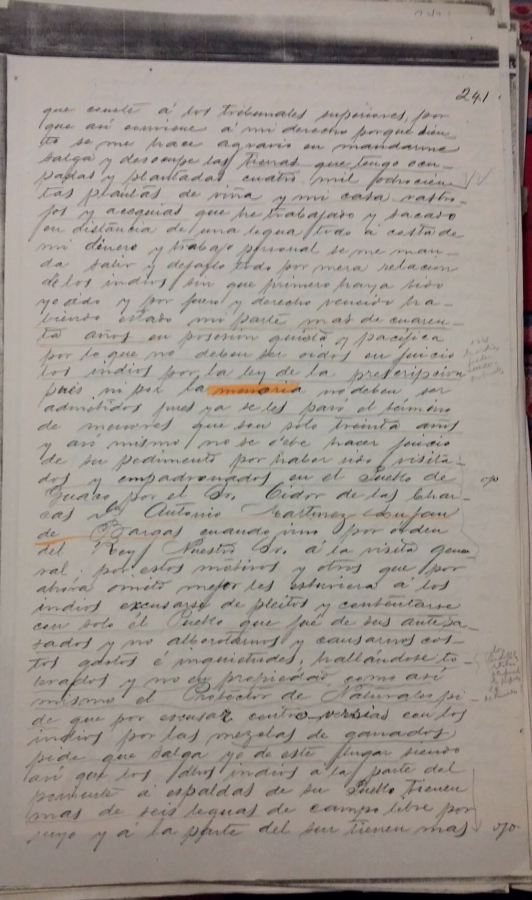 241
que conste á los tribunales superiores, por
que asi conviene á mi derecho porque sien
to se me hace agravio en mandarme
salga y desocupe las tierras que tengo ocu-
padas y plantadas cuatro mil
tas plantas de viña y mi casa rastro-
jos y acequias que he trabajado y sacado
en distancia de una legua todo a costa de
mi dinero y trabajo personal se me man-
da salir y dejarlo todo por mera relacion
de los indios sin que primero haya sido
yo oido y por fuero y derecho vencido ha-
biendo estado mi parte mas de cuaren-
ta años en posesión quieta y pacífica
por lo que no deben ser oidos en juicio
los indios por la ley de la prescripcion
pues ni por la memoria no deben ser
admitidos pues ya se les paso el término
de menores que son solo treinta años
y asi mismo no se debe hacer juicio
de su pedimento por haber sido visita-
dos y empadronados en el Pueblo de
por el Sr. Oidor de las Char-
cas Dn Antonio Martinez Lujan
de Bargas cuando vino por orden
del Rey Nuestro Sr. á la visita gene
ral, por estos motivos y otros que por
ahora omito mejor les estuviera á los
indios excusarse de pleitos y contentarse
con solo el Pueblo que fue de sus antepa-
sados y no alborotarnos y causarnos cos-
tos gastos é inquietudes, hallándose to
lerados y no en propiedad como asi
mismo el Protector de Naturales pi-
de que por escusar controversias con los
indios por las mezclas de ganados
pide que salga yo de este lugar siendo
asi que los dhos indios a la parte del
poniente á espaldas de su Pueblo tienen
mas de seis leguas de campo libre por
suyo y á la parte del sur tienen mas